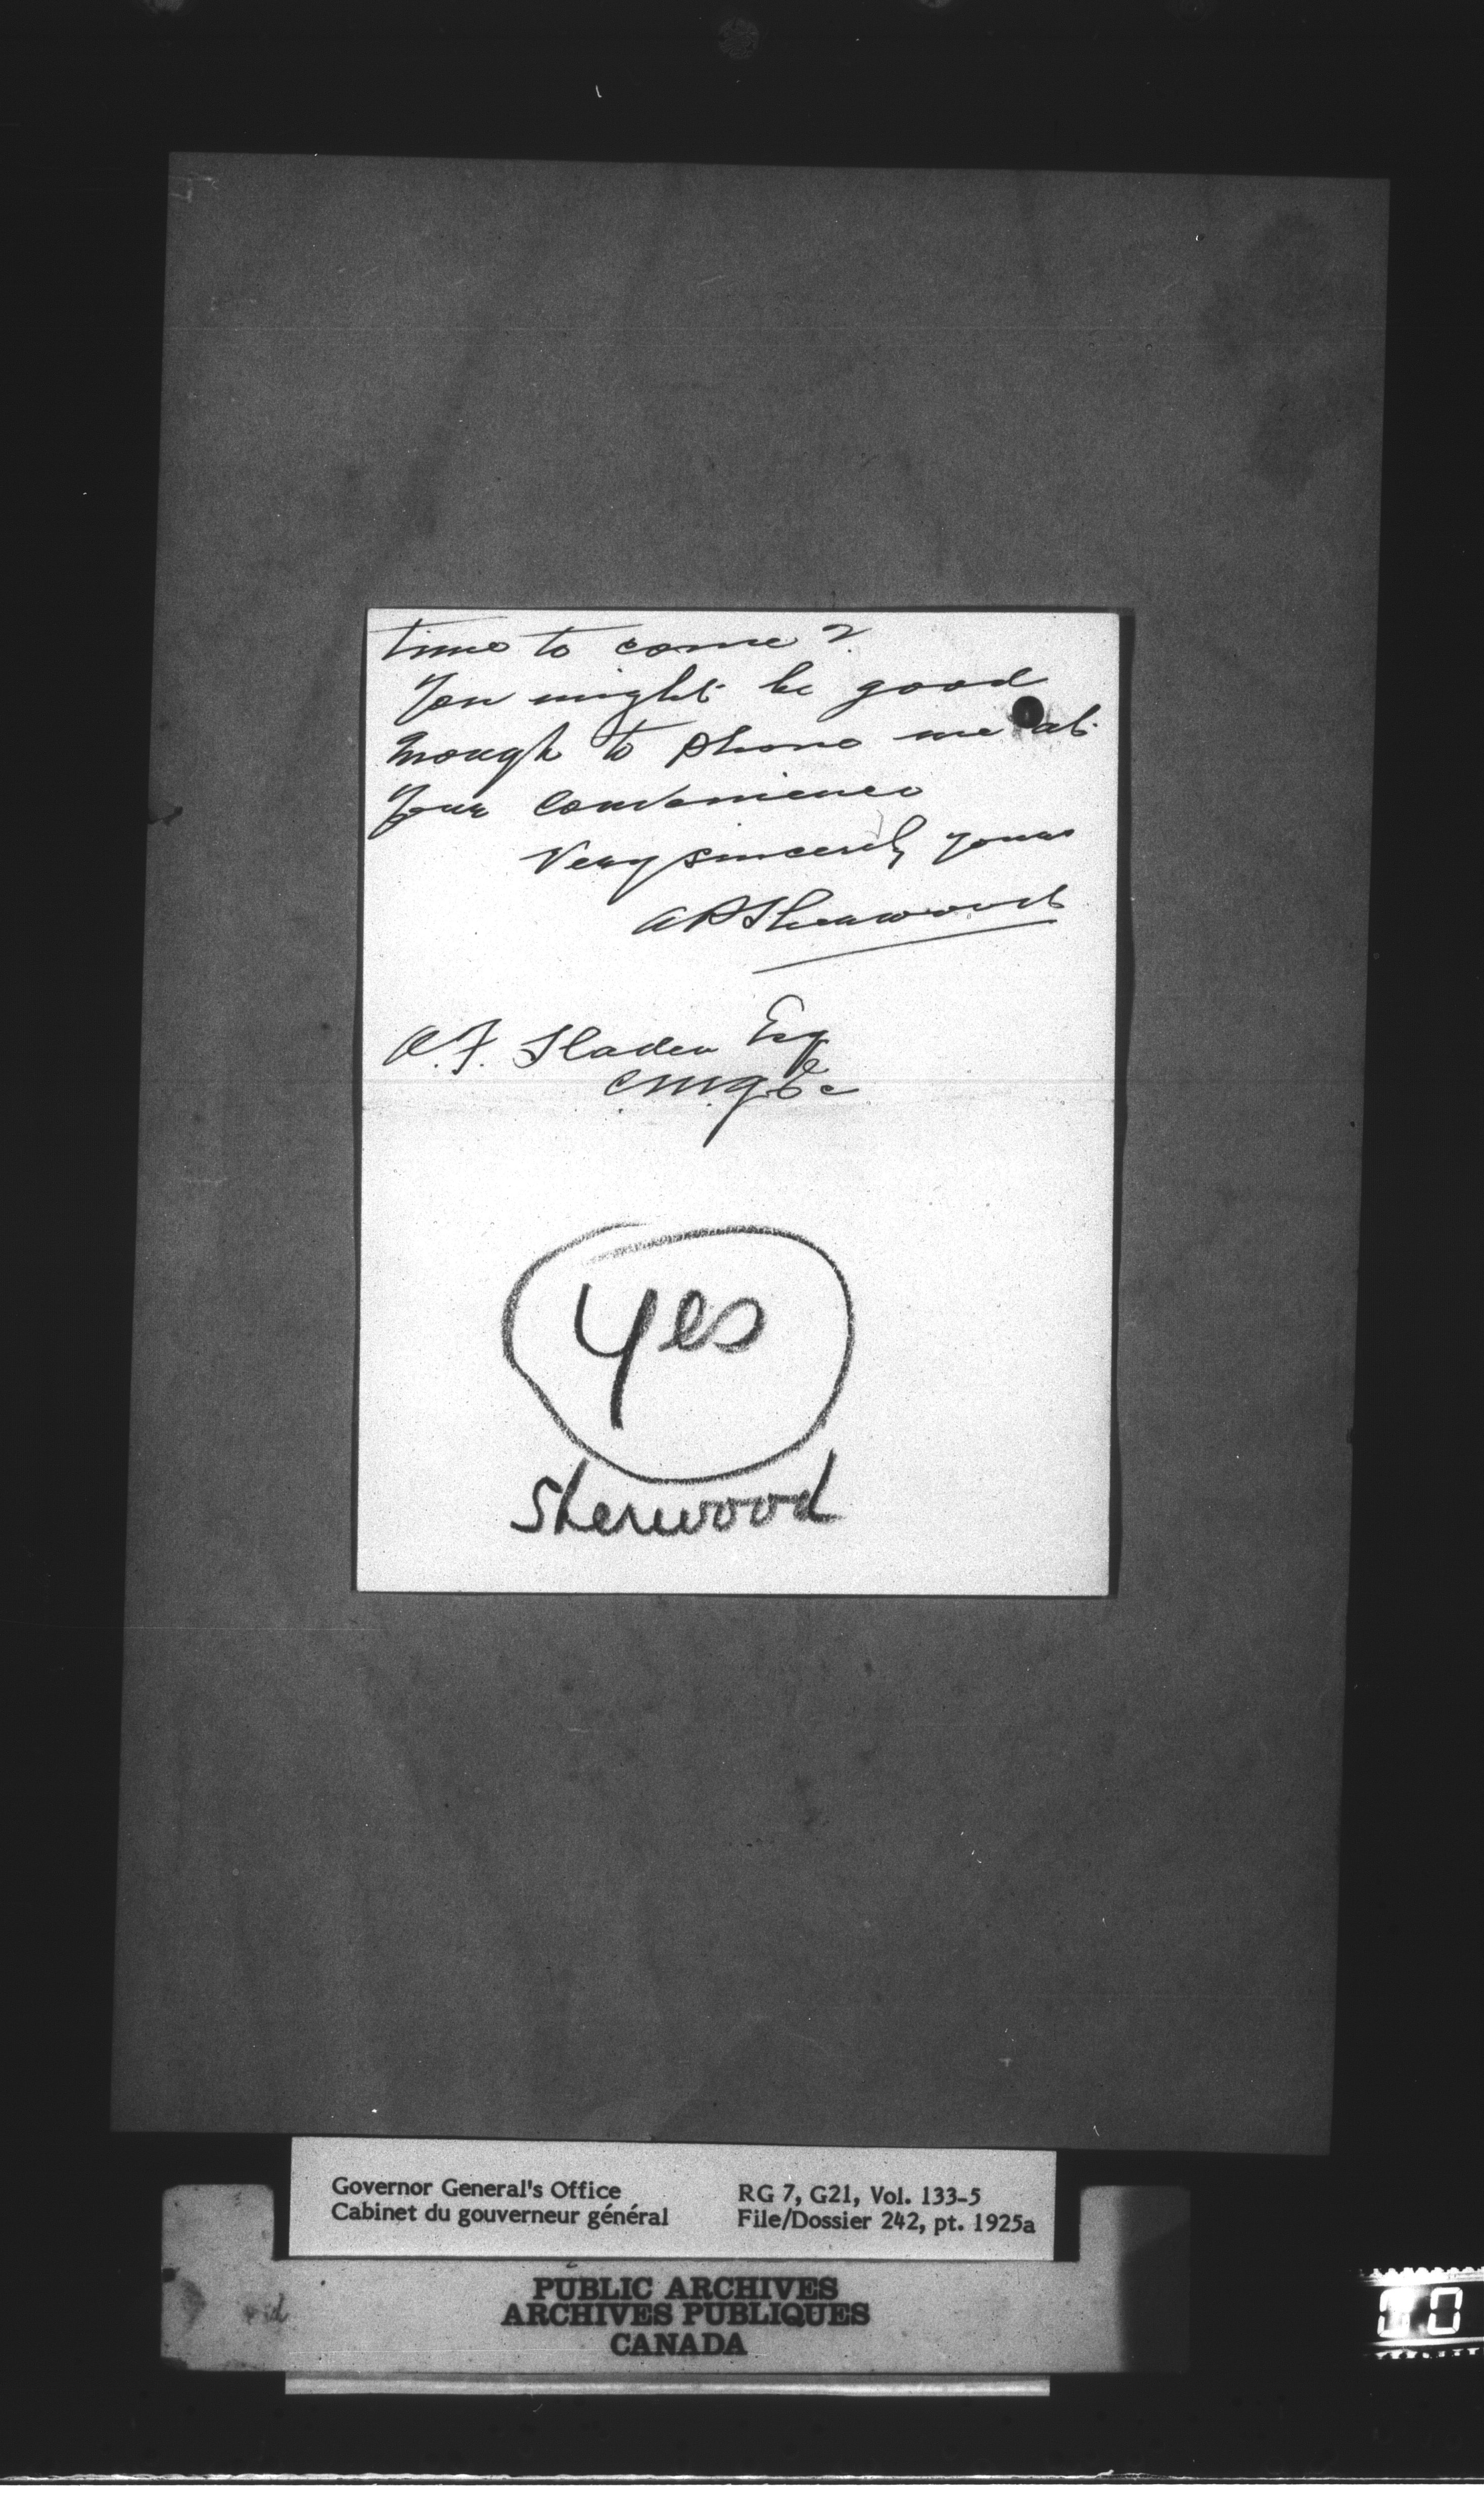 time to come?
You might be good
enough to phone me at
your convenience
Very sincerely yours
AP Sherwood
A.F. Sladen Esq
C.M.G. &c
Yes
Sherwood
Governor General's Office
Cabinet du gouverneur général
RG 7, G21, Vol. 133-5
File/Dossier 242, pt. 1925a
PUBLIC ARCHIVES
ARCHIVES PUBLIQUES
CANADA